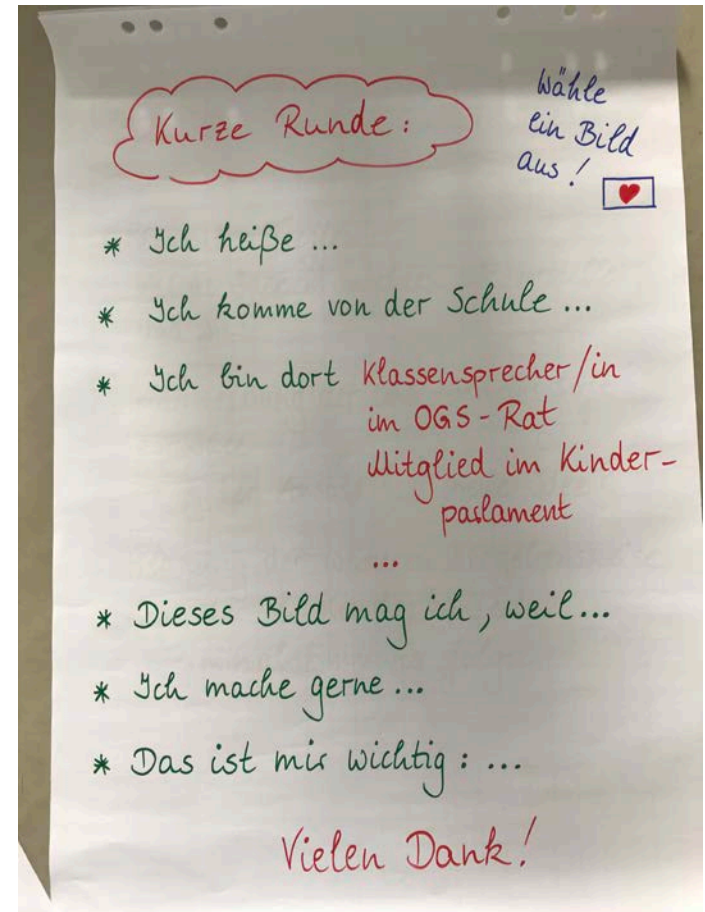 Kurze Runde:
Wähle
ein Bild
aus!
* Ich heiße ...
* Ich komme von der Schule ...
* Ich bin dort Klassensprecher/in
im OGS-Rat
Mitglied im Kinder-
parlament
...
* Dieses Bild mag ich, weil...
* Ich mache gerne ...
* Das ist mir wichtig: ...
Vielen Dank!